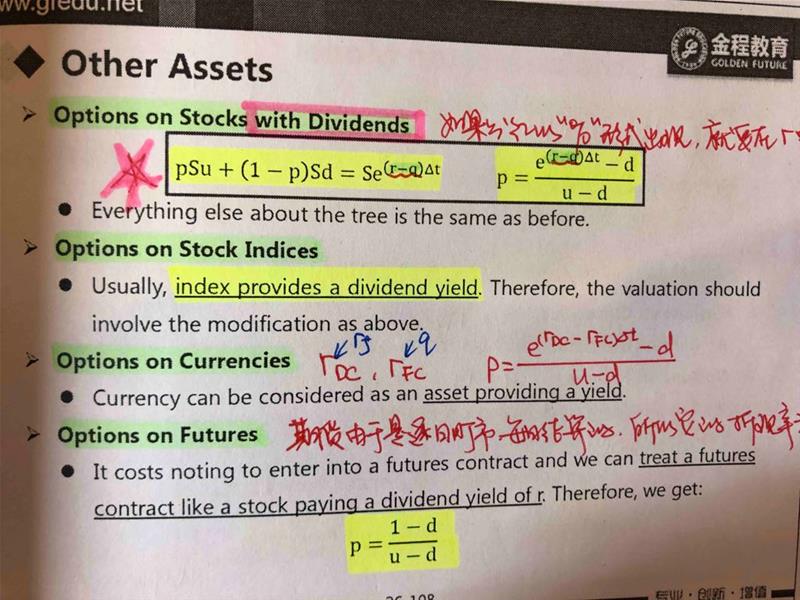 www.gfedu.net
金程教育
GOLDEN FUTURE
◆ Other Assets
➤ Options on Stocks with Dividends 如果分红以"%"形式出现,就要在r
pSu + (1 − p)Sd = Se^{(r−q)Δt} p = \frac{e^{(r−q)Δt} − d}{u − d}
● Everything else about the tree is the same as before.
➤ Options on Stock Indices
● Usually, index provides a dividend yield. Therefore, the valuation should
involve the modification as above.
➤ Options on Currencies r_{DC}, r_{FC} p = \frac{e^{(r_{DC} − r_{FC})Δt} − d}{u − d}
● Currency can be considered as an asset providing a yield.
➤ Options on Futures 期货由于是逐日盯市 每日结算的.所以它的
● It costs noting to enter into a futures contract and we can treat a futures
contract like a stock paying a dividend yield of r. Therefore, we get:
p = \frac{1 − d}{u − d}
专业·创新·增值